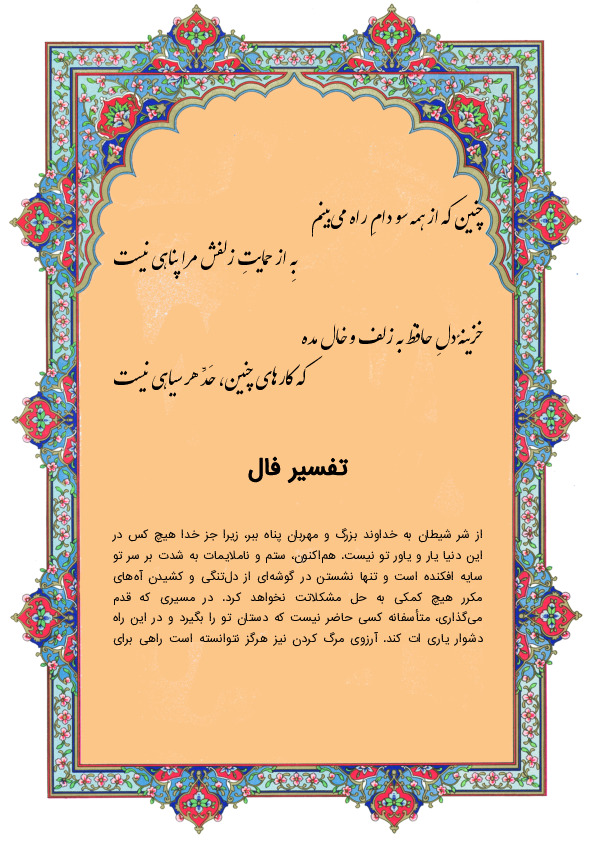 چنین که از همه سو دامِ راه می‌بینم
بِه از حمایتِ زلفش مرا پناهی نیست
خزینهٔ دلِ حافظ به زلف و خال مده
که کارهای چنین، حَدِّ هر سیاهی نیست
تفسیر فال
از شر شیطان به خداوند بزرگ و مهربان پناه ببر، زیرا جز خدا هیچ کس در
این دنیا یار و یاور تو نیست. هم‌اکنون، ستم و ناملایمات به شدت بر سر تو
سایه افکنده است و تنها نشستن در گوشه‌ای از دل‌تنگی و کشیدن آه‌های
مکرر هیچ کمکی به حل مشکلاتت نخواهد کرد. در مسیری که قدم
می‌گذاری، متأسفانه کسی حاضر نیست که دستان تو را بگیرد و در این راه
دشوار یاری ات کند. آرزوی مرگ کردن نیز هرگز نتوانسته است راهی برای